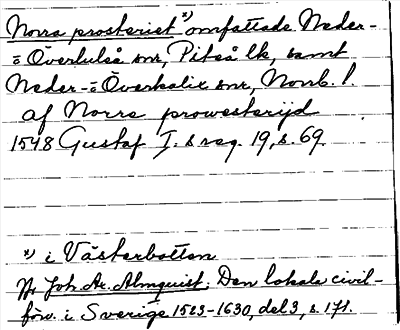 Norra prosteriet *) omfattade Neder-
o Överluleå snr, Piteå lk, samt
Neder- o Överkalix snr, Norrb. l.
af Norra prowesterijd
1548 Gustaf I.s reg. 19, s. 69.
*) i Västerbotten
Joh. Ax. Almquist: Den lokala civil-
förv. i Sverige 1523-1630, del 3, s. 171.